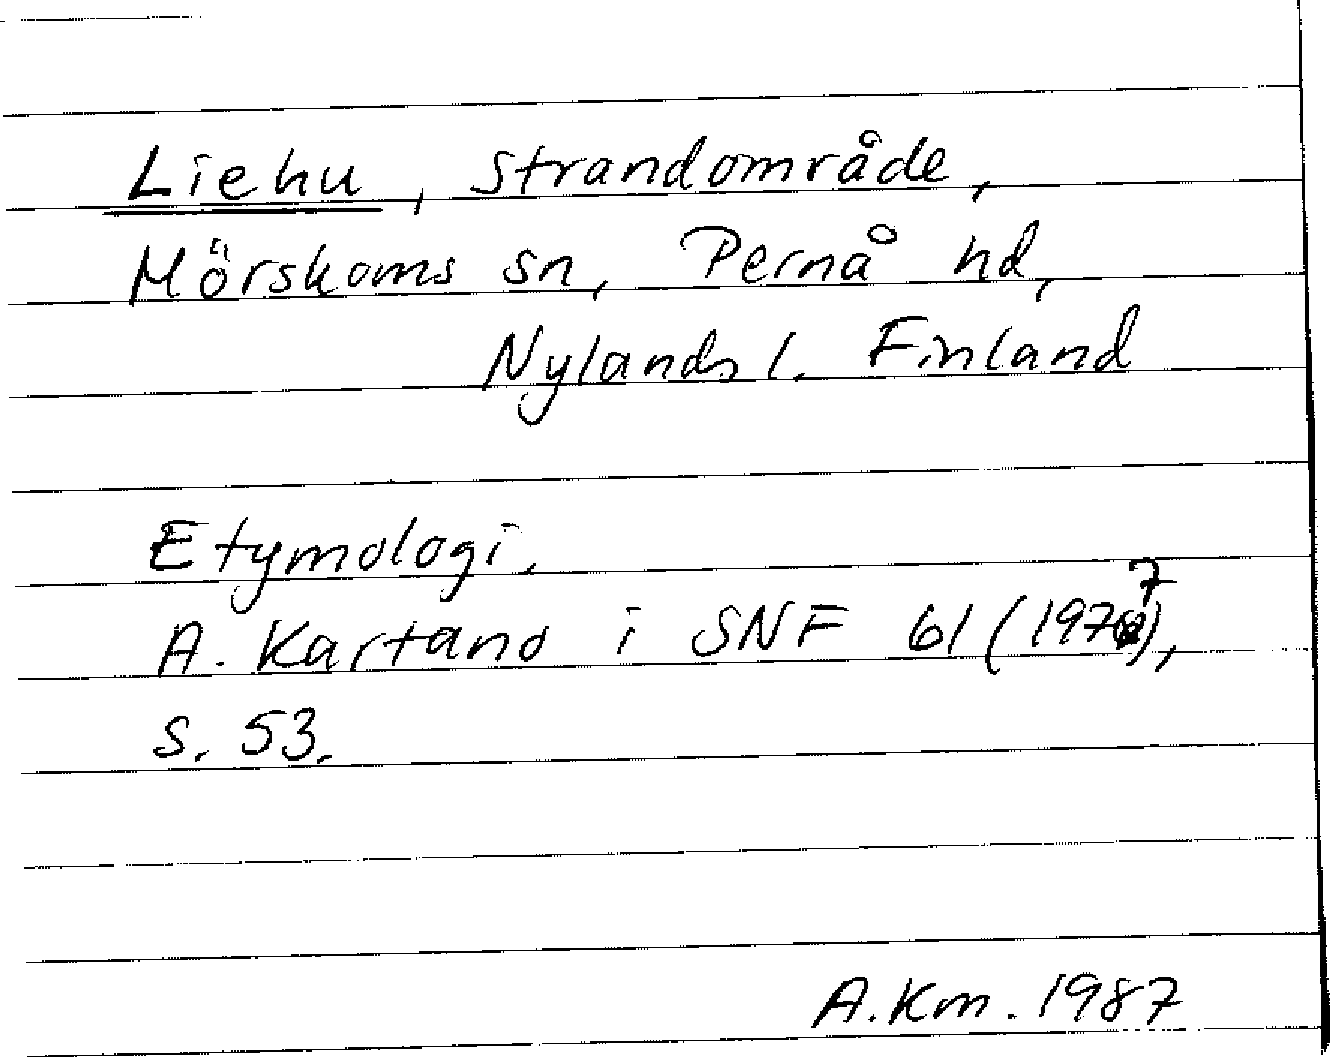 Liehu, strandområde,
Mörskoms sn, Pernå hd,
Nylands l. Finland
Etymologi.
A. Kartano i SNF 61 (1977),
s. 53.
A.Km. 1987